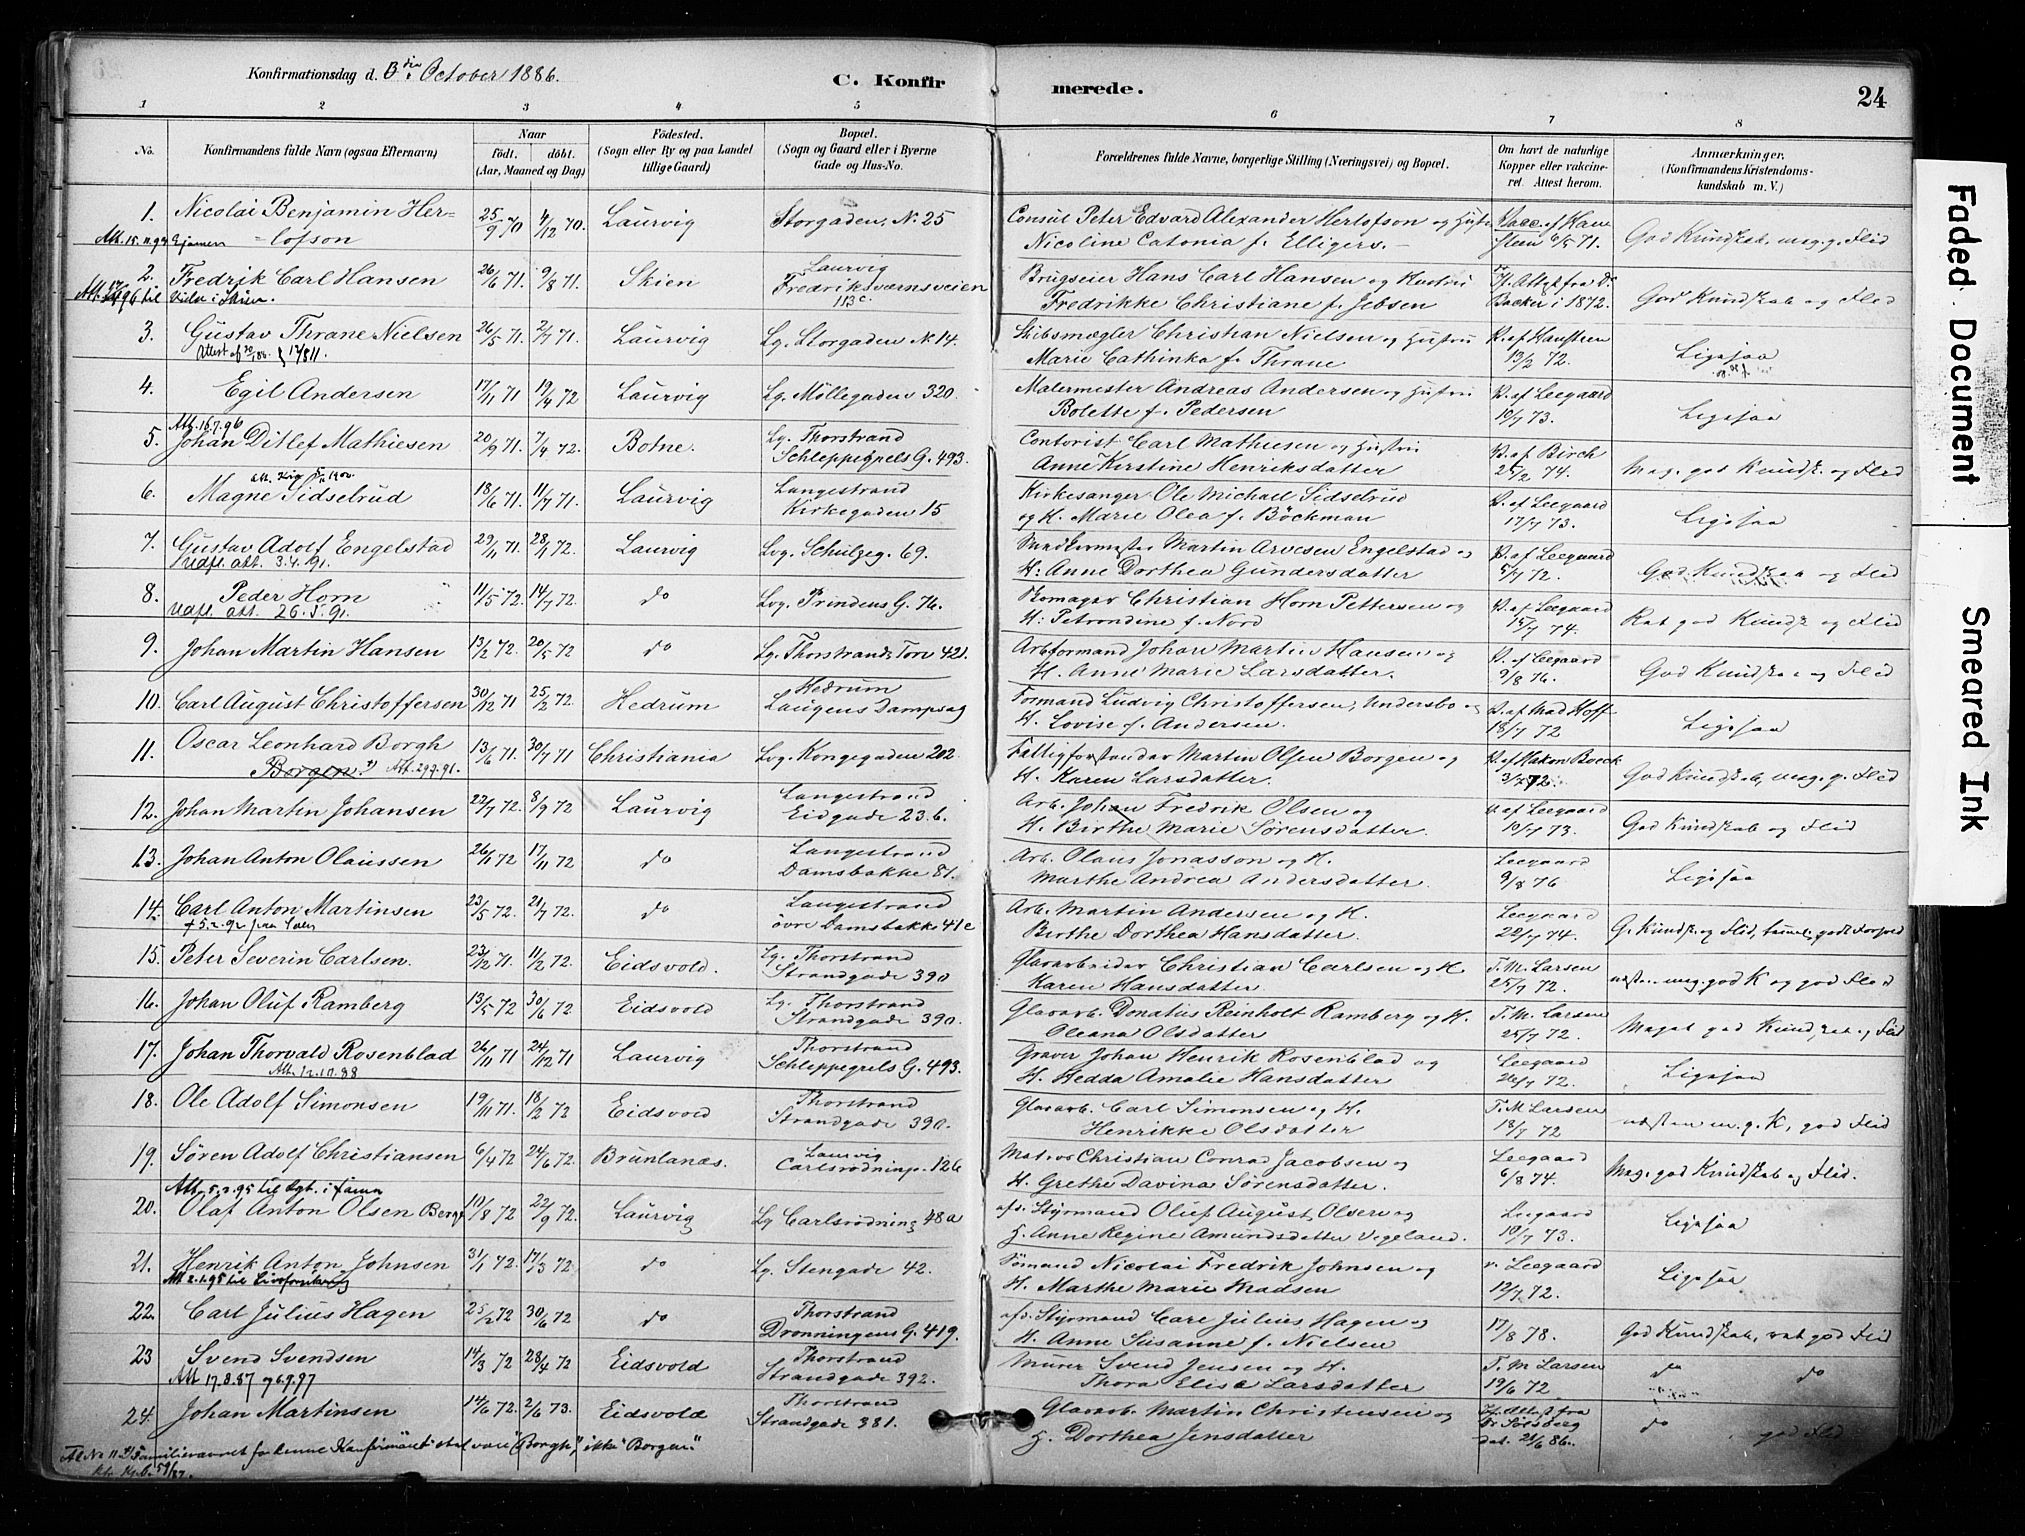 Konfirmationsdag d. 3die October 1886.
C. Konfir
merede.
24
1 2 3 4 5 6 7 8
No.
Konfirmandens fulde Navn (ogsaa Efternavn)
Naar
født. døbt.
(Aar, Maaned og Dag)
Fødested.
(Sogn eller By og paa Landet
tillige Gaard)
Bopæl.
(Sogn og Gaard eller i Byerne
Gade og Hus-No.
Forældrenes fulde Navne, borgerlige Stilling (Næringsvei) og Bopæl.
Om havt de naturlige
Kopper eller vakcine-
ret. Attest herom.
Anmærkninger.
(Konfirmandens Kristendoms-
kundskab m. V.)
1. Nicolai Benjamin Her= 25/9 70 4/12 70. Laurvig Storgaden, N. 25 Consul Peter Edvard Alexander Herlofson og Hustru Vacc. af Hans
Att. 15.11.94 =lofson Nicoline Catonia f. Elligers.- steen 6/5 71. God Kundskab, meg. g. Flid
2. Fredrik Carl Hansen 26/6 71. 9/8 71. Skien Laurvig
Fredriksværnsveien
113c. Brugseier Hans Carl Hansen og Hustru
Fredrikke Christiane f. Jebsen Backer i 1872. God Kundskab og Flid
3. Gustav Thrane Nielsen 26/5 71. 2/7 71. Laurvig Lg. Storgaden N. 14. Skibsmægler Christian Nielsen og Hustru V. af Hansteen
Marie Cathinka f. Thrane 13/2 72. Ligesaa
4. Egil Andersen 17/11 71 19/4 72 Laurvig Lg. Möllegaden 320. Malermester Andreas Andersen og Hustru V. af Leegaard
Bolette f. Pedersen 10/7 73. Ligesaa
Att. 16.7.96
5. Johan Ditlef Mathiesen 20/9 71. 7/4 72. Botne. Lg. Thorstrand
Schleppegrels G. 493. Contorist Carl Mathiesen og Hustru V. af Birch
Anne Kirstine Henriksdatter 25/2 74. Meg. god Kundsk. og Flid
6. Magne Sidselrud 18/6 71. 11/7 71. Laurvig Langestrand
Kirkegaden 15 Kirkesanger Ole Michael Sidselrud V. af Leegaard
og H. Marie Olea f. Böckman 17/7 73. Ligesaa
7. Gustav Adolf Engelstad 29/11 71. 28/11 72. Laurvig Lvg. Schulzeg. 69. Martin Arvesen Engelstad og V. af Leegaard
Udfl. att. 3.4.91. H. Anne Dorthea Gundersdatter 5/7 72. God Kundskab og Flid
8. Peder Horn 11/5 72. 14/7 72. do Lvg. Prindens G. 76. Skomager Christian Horn Pettersen og V. af Leegaard
Udfl. att. 26.5.91. H. Petrondine f. Nord 15/7 74. Ret god Kundsk og Flid
9. Johan Martin Hansen 13/2 72. 20/5 72 do Lg. Thorstrands Torv 421. Arbformand Johan Martin Hansen og V. af Leegaard
H. Anne Marie Larsdatter. 9/8 76. God Kundskab og Flid
10. Carl August Christoffersen 30/12 71 25/2 72. Hedrum Hedrum
Laugens Dampsag Formand Ludvig Christoffersen, Undersbo og V. af Mad Hoff
H. Lovise f. Andersen. 18/7 72 Ligesaa
11. Oscar Leonhard Borgh 13/6 71. 30/7 71 Christiania Lvg. Kongegaden 202. Fattigforstander Martin Olsen Borgen og V. af Hakon Boeck
Borgen.*) Att. 29.7.91. H. Karen Larsdatter. 3/7 72. God Kundskab, meg. g. Flid
12. Johan Martin Johansen 22/7 72. 8/9 72 Laurvig Langestrand
Eidgade 23.b. Arb. Johan Fredrik Olsen og V. af Leegaard
H. Birthe Marie Sørensdatter. 10/7 73. God Kundskab og Flid
13. Johan Anton Olaussen 26/11 72 17/11 72 do Langestrand
Damsbakke 81. Arb. Olaus Jonasson og H. Leegaard
Marthe Andrea Andersdatter. 9/8 76 Ligesaa
14. Carl Anton Martinsen 23/5 72. 21/7 72. do Langestrand
øvre Damsbakke 41c Arb. Martin Andersen og H. Leegaard
+ 5.2.92 paa Søen Birthe Dorthea Hansdatter. 22/7 74. G. Kundsk. og Flid,
15. Peter Severin Carlsen. 23/12 71. 11/2 72. Eidsvold. Lg. Thorstrand
Strandgade 390 Glasarbeider Christian Carlsen og H. T. M. Larsen
Karen Hansdatter. 25/7 72. næsten meg. god K og god Flid
16. Johan Oluf Ramberg 13/5 72 30/6 72 Eidsvold Lg. Thorstrand
Strandgade 390. Glasarb. Donatus Reinholt Ramberg og H. T. M. Larsen
Oleana Olsdatter 25/7 72. Meget god Kundskab og Flid
17. Johan Thorvald Rosenblad 26/11 71 24/12 71 Laurvig Thorstrand
Schleppegrels G. 493. Graver Johan Henrik Rosenblad og Leegaard
Att. 12.10.88 H. Hedda Amalie Hansdatter 26/7 72. Ligesaa
18. Ole Adolf Simonsen 19/11 71. 18/2 72 Eidsvold Thorstrand
Strandgade 390. Glasarb. Carl Simonsen og H. T. M Larsen
Henrikke Olsdatter 18/7 72 næsten m. g. K, god Flid
19. Søren Adolf Christiansen 6/4 72 24/6 72. Brunlanæs. Laurvig
Carlsrödning. 126 Matros Christian Conrad Jacobsen og Leegaard
H. Grethe Davina Sørensdatter. 6/8 74. Meg. god Kundskab og Flid.
20. Olaf Anton Olsen Berg 10/8 72 22/9 72. Laurvig Lg Carlsrödning 48a afd. Styrmand Oluf August Olsen og Leegaard
H. Anne Regine Amundsdatter Vegeland. 10/7 73. Ligesaa
21. Henrik Anton Johnsen 31/1 72. 17/3 72 do Lg. Stengade 42. Sömand Nicolai Fredrik Johnsen og v. Leegaard
H. Marthe Marie Madsen 12/7 72. Ligesaa
22. Carl Julius Hagen 25/2 72 30/6 72 do Thorstrand
Dronningens G. 419. afd. Styrmand Carl Julius Hagen og 17/8 78.
H. Anne Susanne f. Nielsen God Kundskab, ret god Flid
23 Svend Svendsen 14/3 72 28/4 72 Eidsvold Thorstrand
Strandgade 392. Murer Svend Jensen og H. T. M Larsen
Att 17.8.87 og 6.9.97 Thora Elise Larsdatter 19/6 72. do do
24. Johan Martinsen 14/6 72. 2/6 73. Eidsvold Thorstrand
Strandgade 381. Glasarb. Martin Christensen og
H. Dorthea Jensdatter dat. 21/6 86. do god Flid
Familienavnet for denne Konfirmant skal være "Borgh," ikke "Borgen."
Faded Document
Smeared Ink